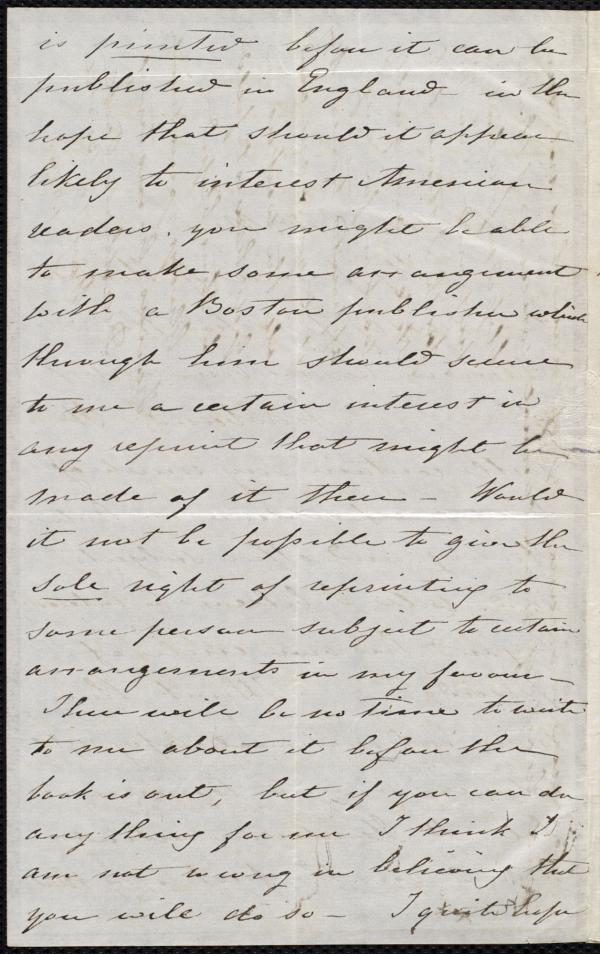 is printed before it can be
published in England - in the
hope that should it appear
likely to interest American
readers, you might be able
to make some arrangement
with a Boston publisher which
through him should secure
to me a certain interest in
any reprint that might be
made of it there - Would
it not be possible to give the
sole right of reprinting to
some person subject to certain
arrangements in my favour -
There will be no time to write
to me about it before the
book is out, but if you can do
any thing for me I think I
am not wrong in believing that
you will do so - I quite hope